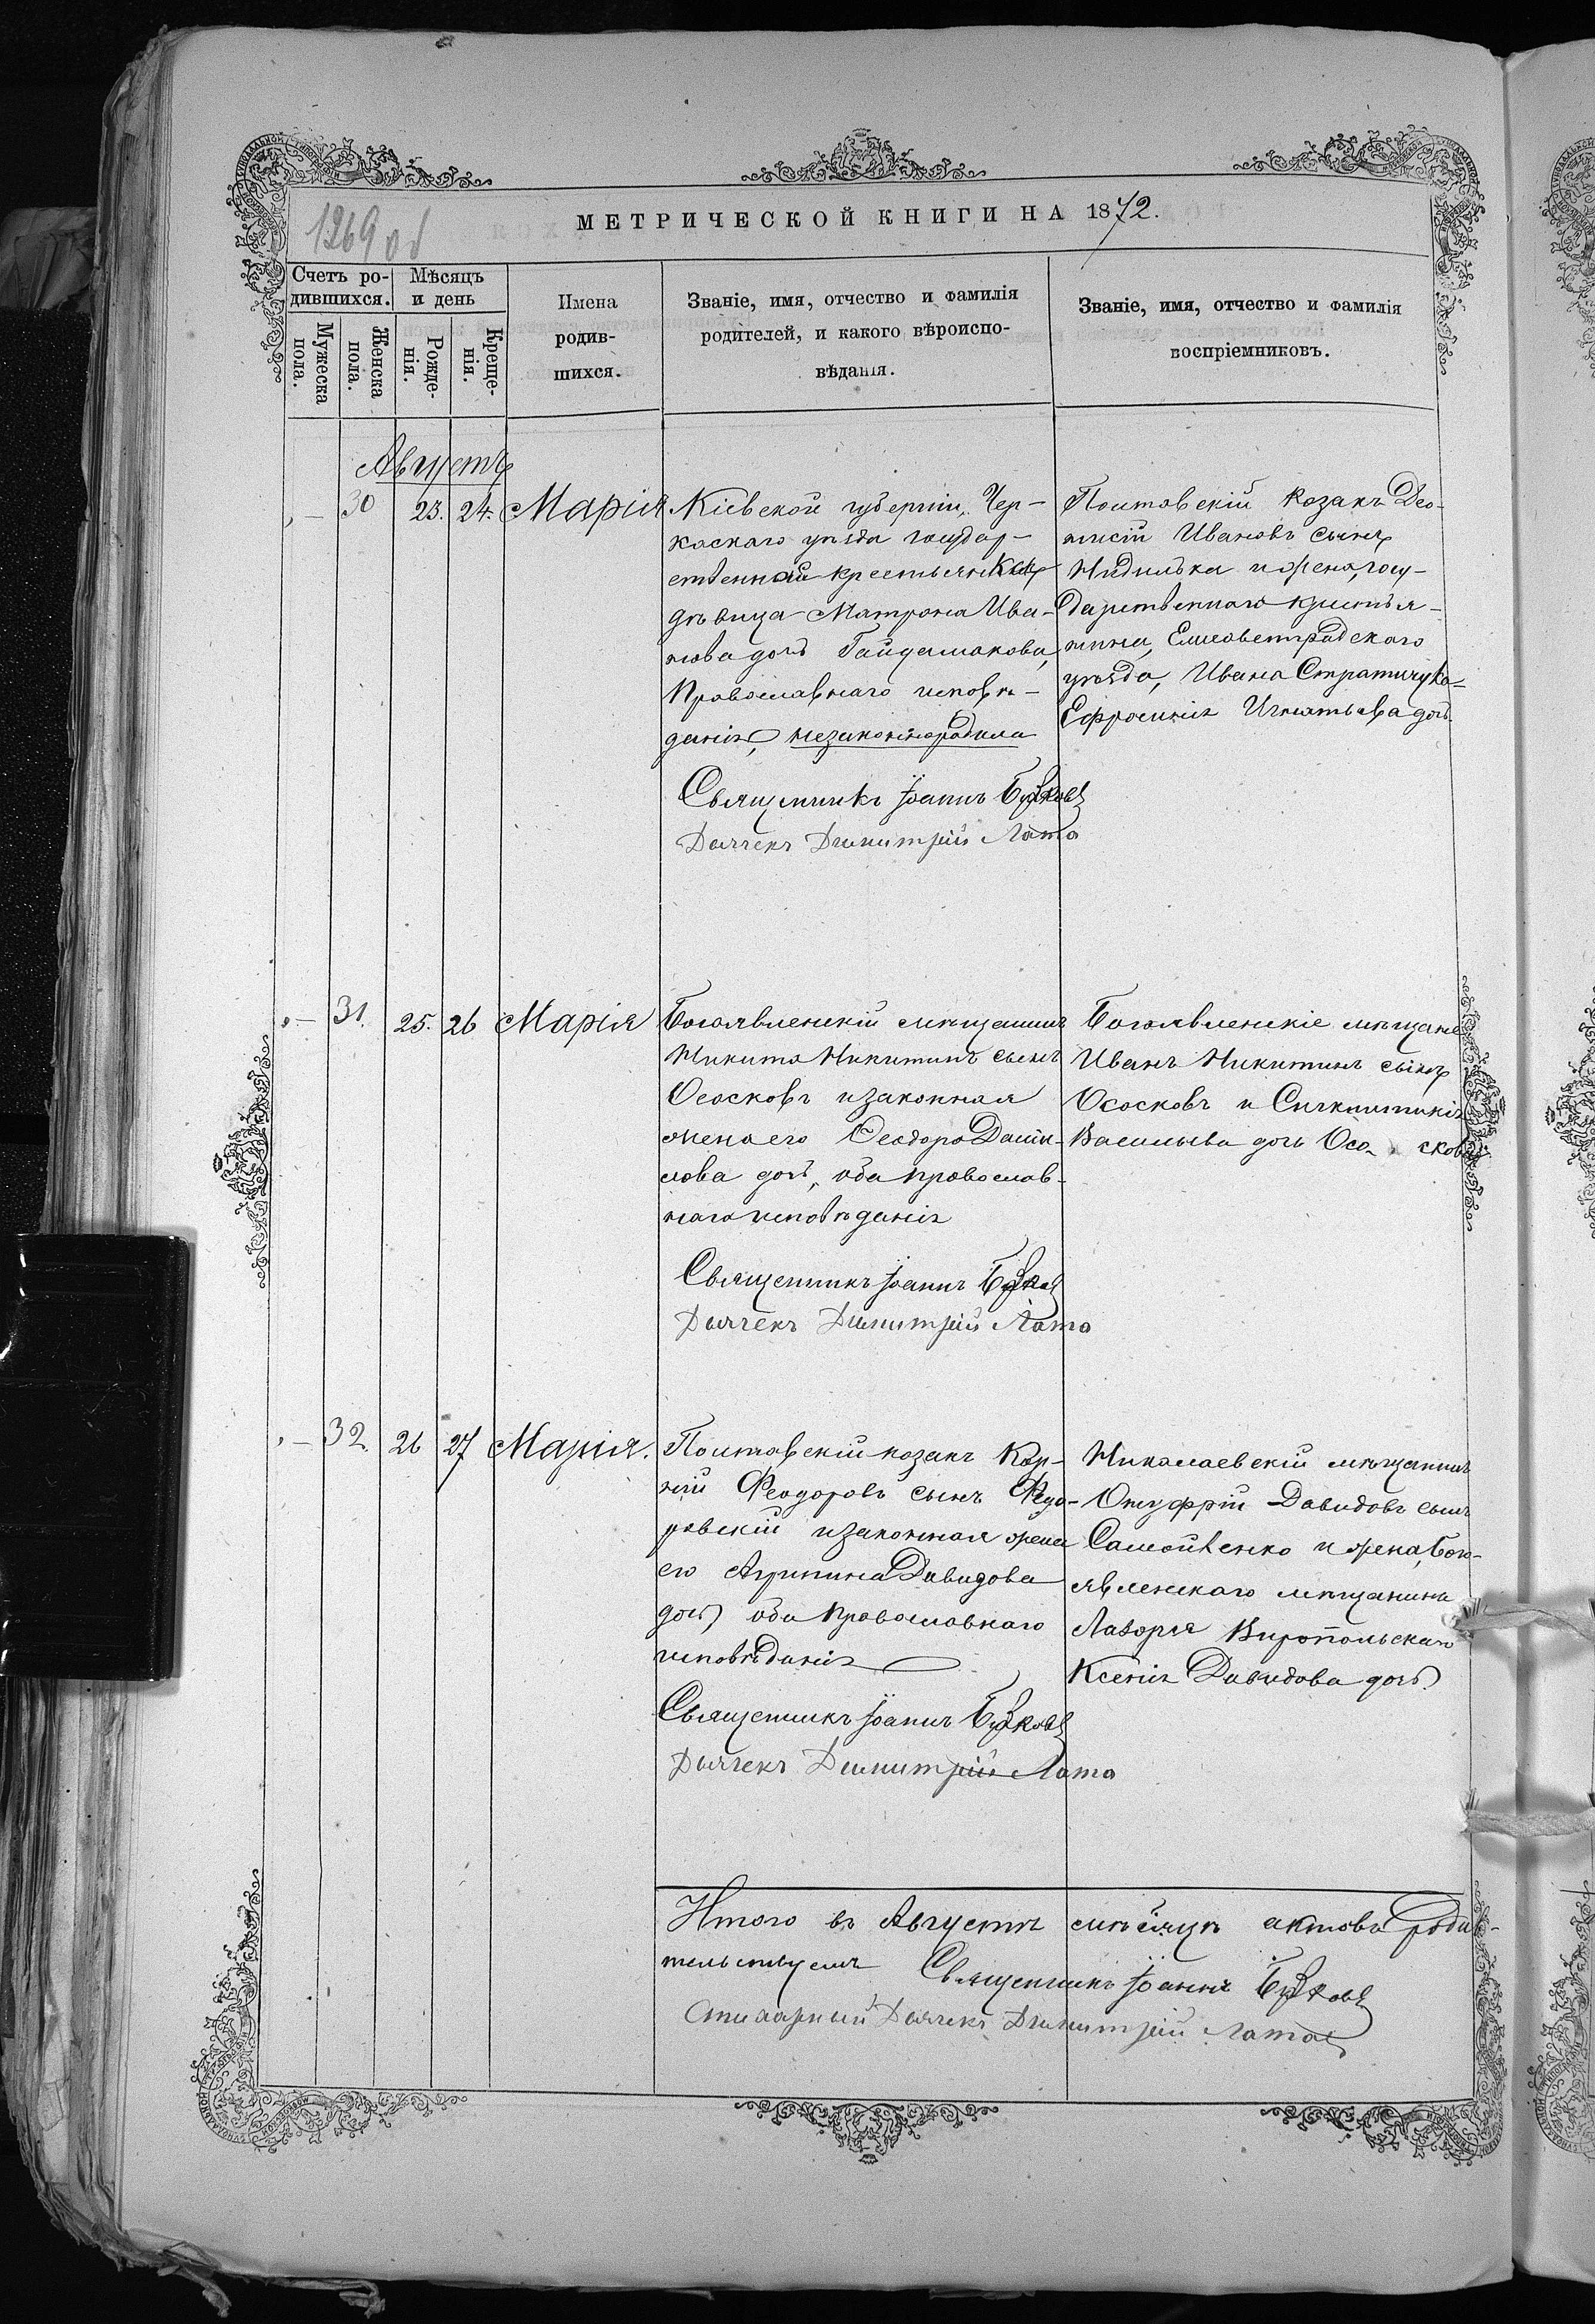 1269 об
МЕТРИЧЕСКОЙ КНИГИ НА 1872.
Счетъ ро-
дившихся.
Мѣсяцъ
и день
Мужеска
пола.
Женска
пола.
Рожде-
нія.
Креще-
нія.
Имена
родив-
шихся.
Званіе, имя, отчество и фамилія
родителей, и какого вѣроиспо-
вѣданія.
Званіе, имя, отчество и фамилія
воспріемниковъ.
Августъ
30 23. 24. Марія
Кіевской губерніи, Чер-
каскаго уѣзда государ-
ственной крестьянки
дѣвица Матрона Ива-
нова дочь Гайдамакова,
Православнаго исповѣ-
данія, незаконнородила
Священникъ Іоаннъ
Дьячекъ Димитрій Лата
Полтавскій козакъ Део-
нисій Ивановъ сынъ
Нидилька и жена, госу-
дарственнаго крестья-
нина, Елисаветградскаго
уѣзда, Ивана Стратичука
Ефросинія Игнатьева дочь
31. 25. 26 Марія
Богоявленскій мѣщанинъ
Никита Никитинъ сынъ
Ососковъ и законная
жена его Ѳеодора Дани-
лова дочь, оба православ-
наго исповѣданія
Священникъ Іоаннъ
Дьячекъ Димитрій Лата
Богоявленскіе мѣщане
Иванъ Никитинъ сынъ
Ососковъ и Синклитикія
Васильева дочь Осо- скова
32. 26 27 Марія.
Полтавскій козакъ Кор-
ній Феодоровъ сынъ Федо-
ровскій и законная жена
его Агрипина Давидова
дочь, оба Православнаго
исповѣданія
Священникъ Іоаннъ
Дьячекъ Димитрій Лата
Николаевскій мѣщанинъ
Онуфрій Давидовъ сынъ
Самойленко и жена, Бого-
явленскаго мѣщанина
Лазоря Виропольскаго
Ксенія Давидова дочь
Итого въ Августѣ мѣсяцѣ актовъ
Священникъ Іоаннъ
Дьячекъ Димитрій Лата